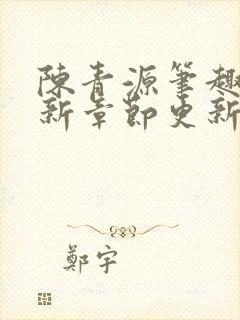 陳青源筆趣
新章節更新
鄭宇